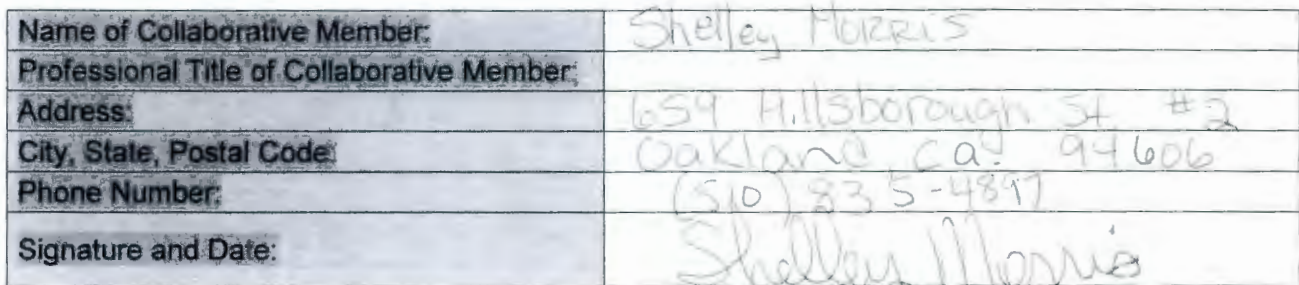 Name of Collaborative Member: Shelley MORRIS
Professional Title of Collaborative Member:
Address: 659 Hillsborough St #2
City, State, Postal Code: Oakland Ca. 94606
Phone Number: (510) 835-4897
Signature and Date: Shelley Morris